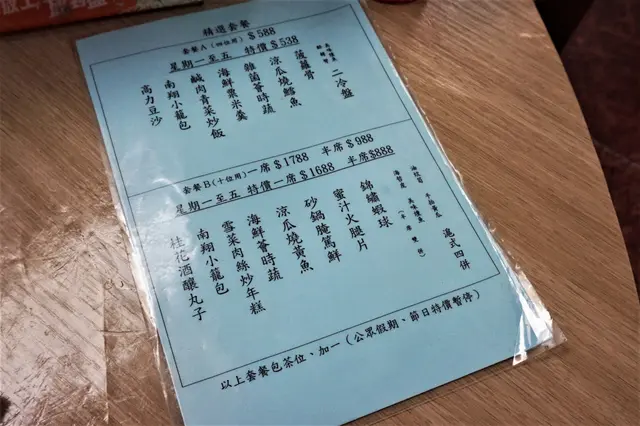 精選套餐
套餐A（四位用）$588
星期一至五 特價$538
二冷盤
菠蘿骨
涼瓜燒鱔魚
雜菌薈時蔬
海鮮粟米羹
鹹肉青菜炒飯
南翔小籠包
高力豆沙
套餐B（十位用）一席$1788 半席$988
星期一至五 特價一席$1688 半席$888
滬式四併
錦繡蝦球
蜜汁火腿片
砂鍋腌篤鮮
涼瓜燒黃魚
海鮮薈時蔬
雪菜肉絲炒年糕
南翔小籠包
桂花酒釀丸子
以上套餐包茶位、加一（公眾假期、節日特價暫停）